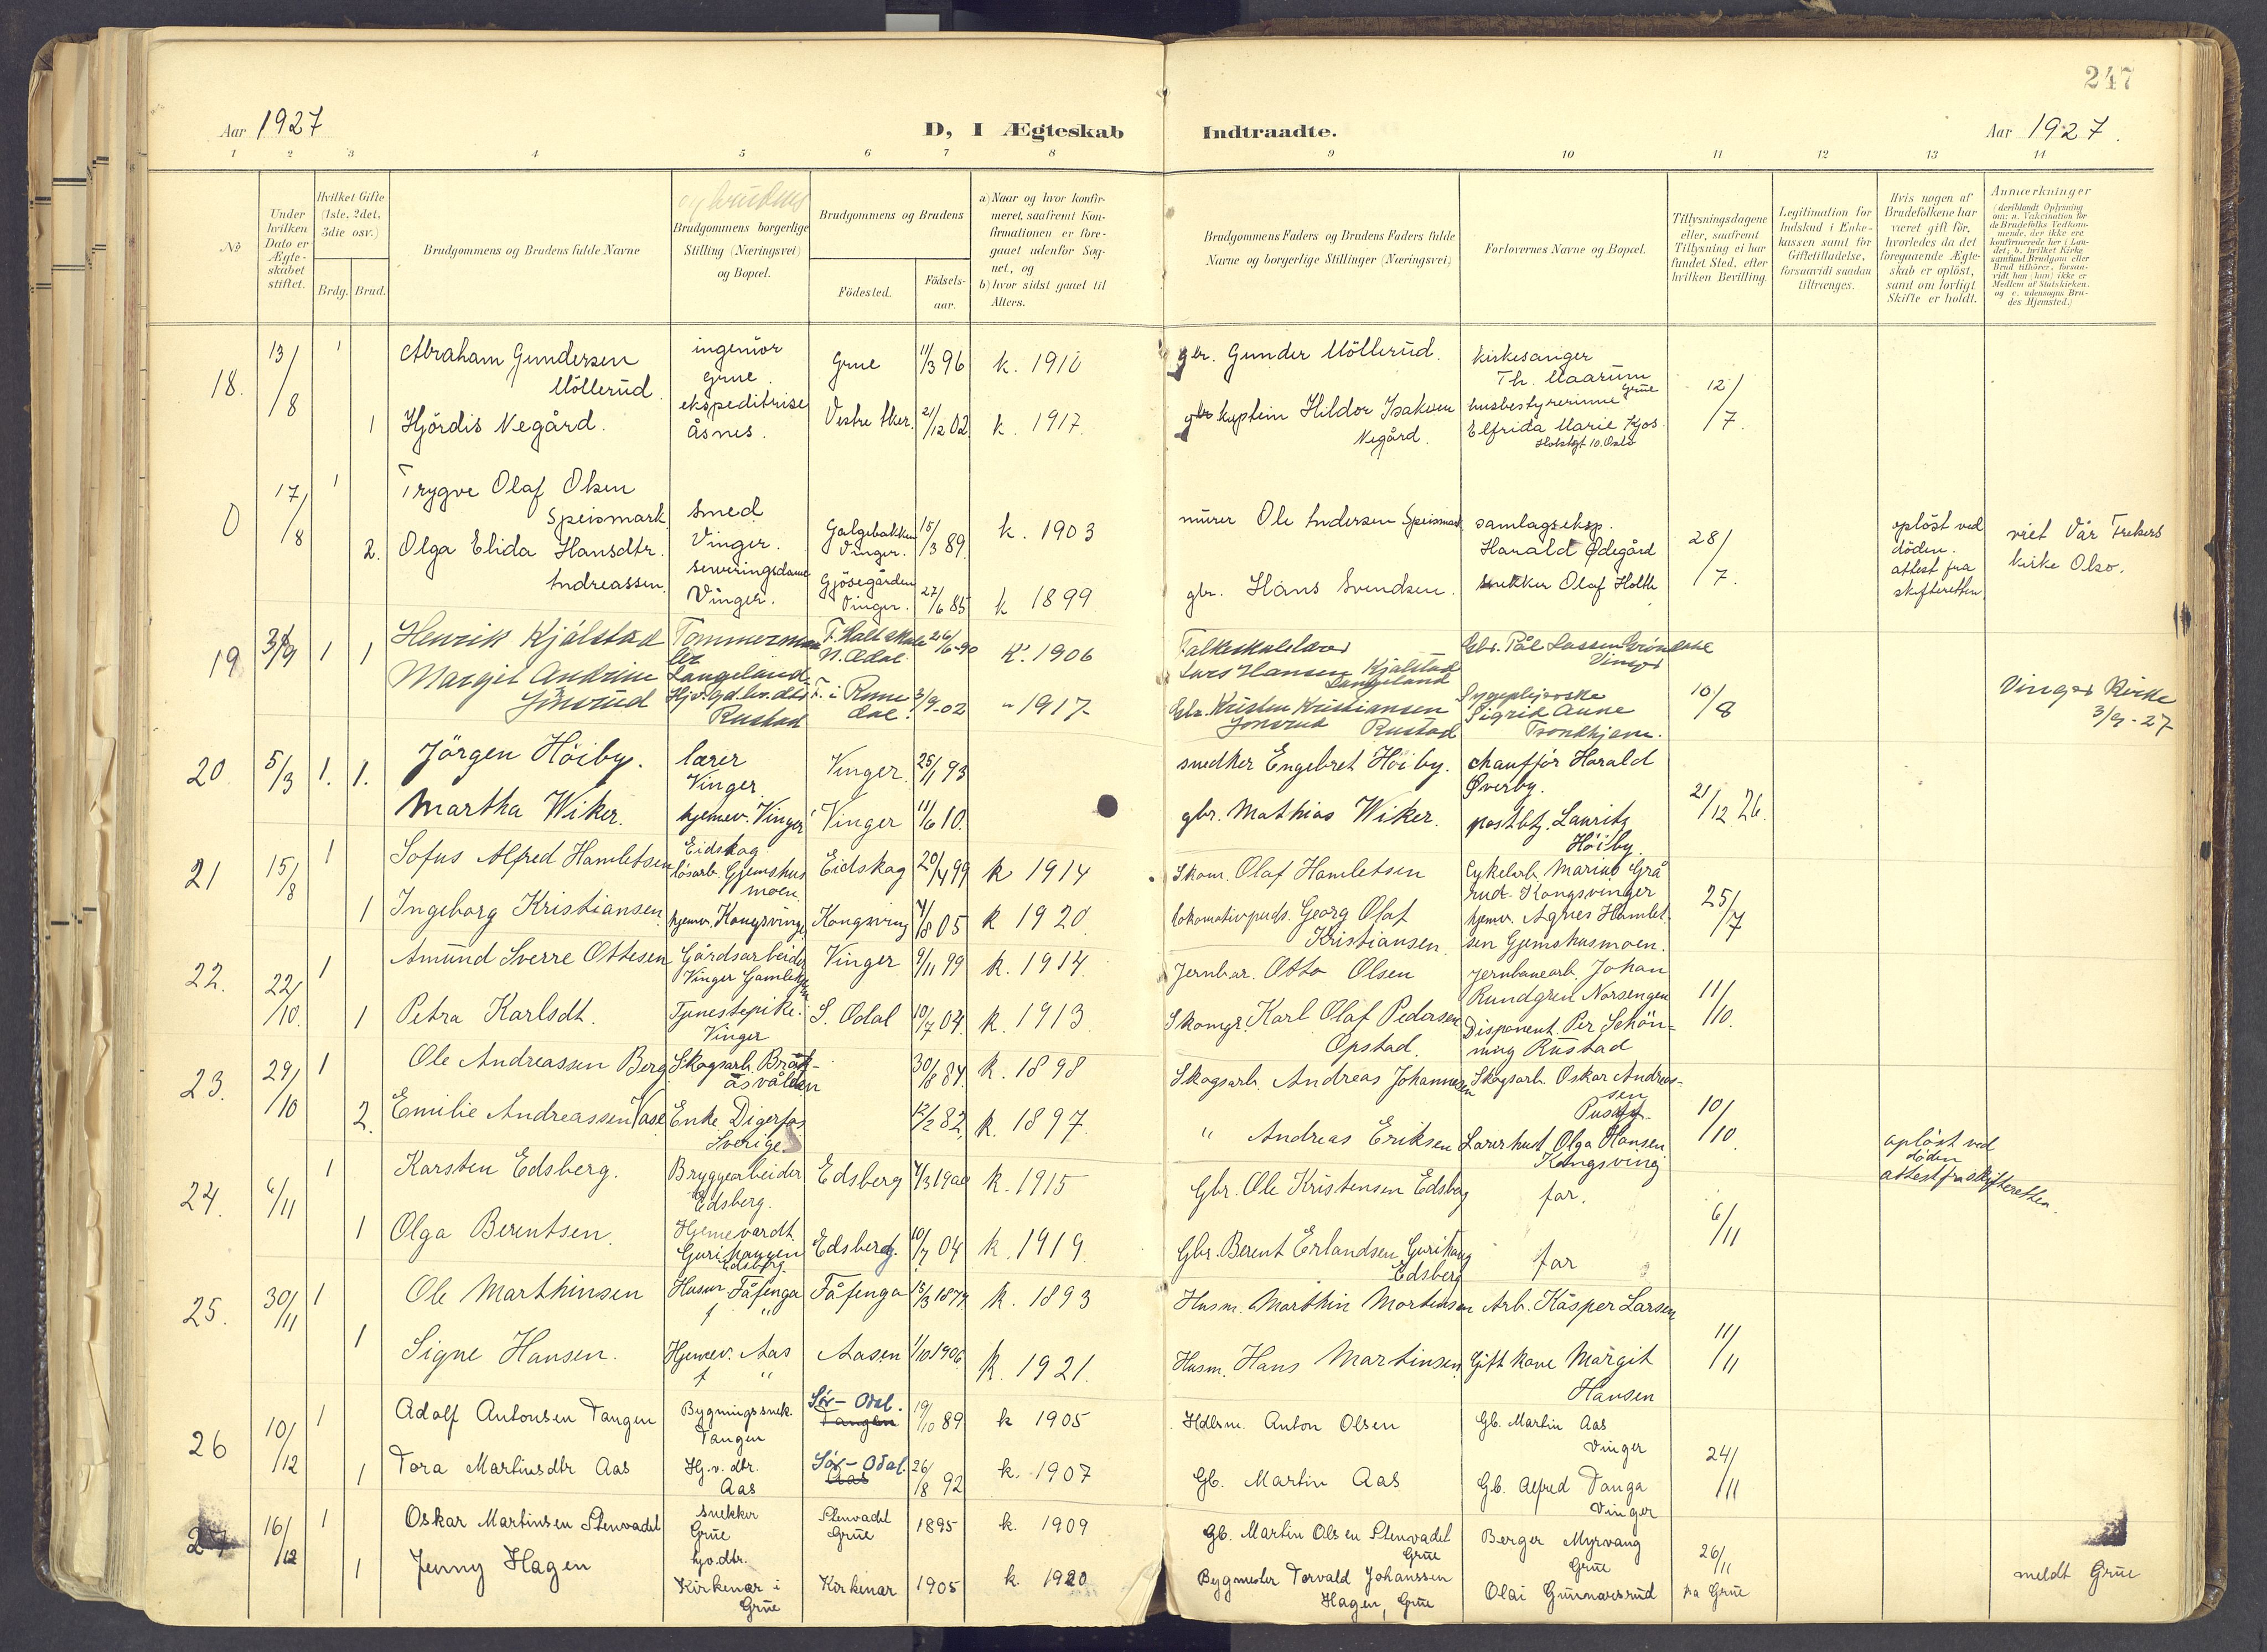 247
Aar 1927
D, I Ægteskab
Indtraadte.
Aar 1927.
1 2 3 4 5 6 7 8 9 10 11 12 13 14
No
Under hvilken Dato er Ægteskabet stiftet.
Hvilket Gifte (1ste, 2det, 3die osv.)
Brdg. Brud.
Brudgommens og Brudens fulde Navne
og brudens
Brudgommens borgerlige Stilling (Næringsvei) og Bopæl.
Brudgommens og Brudens
Fødested.
Fødselsaar.
a) Naar og hvor konfirmeret, saafremt Konfirmationen er foregaaet udenfor Sognet, og
b) hvor sidst gaaet til Alters.
Brudgommens Faders og Brudens Faders fulde Navne og borgerlige Stillinger (Næringsvei)
Forlovernes Navne og Bopæl.
Tillysningsdagene eller, saafremt Tillysning ei har fundet Sted, efter hvilken Bevilling.
Legitimation for Indskud i Enkekassen samt for Giftetilladelse, forsaavidt saadan tiltrænges.
Hvis nogen af Brudefolkene har været gift før, hvorledes da det foregaaende Ægteskab er opløst, samt om lovligt Skifte er holdt.
Anmærkninger
(deriblandt Oplysning om: a. Vakcination for de Brudefolks Vedkommende, der ikke ere konfirmerede her i Landet; b. hvilket Kirkesamfund Brudgom eller Brud tilhører, forsaavidt han (hun) ikke er Medlem af Statskirken. og c. udensogns Brudes Hjemsted.)
18. 13/8 1 Abraham Gundersen Möllerud. ingeniör Grue. Grue 11/3 96 k. 1910 gbr. Gunder Möllerud. kirkesanger Th. Maarum Grue 12/7.
1 Hjördis Negård. ekspeditrise åsnes. Vestre Aker. 21/12 02 k. 1917. kaptein Hildor Isaksen Negård. husbestyrerinne Elfrida Marie Kjos. Holstgt 10. Oslo
0 17/8 1 Trygve Olaf Olsen Speismark smed Vinger. Galgebakken Vinger. 15/3 89. k. 1903 murer Ole Andersen Speismark samlagseksp. Harald Ødegård 28/7. oplöst ved döden. attest fra skifteretten viet Vår Frelsers kirke Olso.
2. Olga Elida Hansdtr. Andreassen. serveringsdame Vinger. Gjösegården Vinger. 27/6 85 k 1899 gbr. Hans Svendsen. snekker Olaf Holth
19 3/9 1 1 Henrik Kjälstad Tommermann Langeland N. Odal. 26/6-90 K. 1906 Lars Hansen Kjälstad Langeland Gbr. Pål Lassen Vinger
Margit Andrine Jönsrud Hjv. gd.br.dtr Rustad F. i Rom dal. 3/9-02 " 1917- Gbr. Kristen Kristiansen Jonsrud Rustad Sygepleierske Sigrid Aune Trondhjem. 10/8 Vinger Kirke 3/9-27
20 5/3 1. 1. Jörgen Höiby. lærer Vinger. Vinger. 25/1 93 snedker Engebret Höiby. chauffjör Harald Øverby. 21/12 26.
Martha Wiker. hjemev. Vinger Vinger 11/6 10. gbr. Mathias Wiker. postbtj. Lauritz Höiby.
21 15/8 1 Sofus Alfred Hamletsen Eidskog lösarb. Gjemshusmoen Eidskog 20/4 99 k 1914 Skom. Olaf Hamletsen Cykelarb. Marius Grårud. Kongsvinger 25/7
1 Ingeborg Kristiansen hjemv. Kongsving. Kongsving 4/8 05 k 1920. lokomotivpuds. Georg Olaf Kristiansen hjemv. Agnes Hamletsen Gjemshusmoen.
22. 22/10. 1 Amund Sverre Ottesen Gårdsarbeider Vinger Vinger 9/11 99 k. 1914. Jernbar. Otto Olsen Jernbanearb. Johan Rundgren Norsengen 11/10.
1 Petra Karlsdt. Tjenestepike. Vinger S. Odal 10/7 04. k. 1913. Skomgr. Karl Olaf Pedersen Opstad. Disponent. Per Schönning Rustad
23. 29/10 1 Ole Andreassen Berg Skogsarb. 30/8 84. k. 1898 Skogsarb. Andreas Johannesen Skogsarb. Oskar Andreassen 10/10.
2. Emilie Andreassen Vase Enke. Digerfos Sverige. 12/2 82, k. 1897. " Andreas Eriksen Lærerhust. Olga Hansen Kongsving oplöst ved döden attest fra skifteretten.
24. 6/11 1 Karsten Edsberg. Bryggearbeider Edsberg. Edsberg 4/3 1900 k. 1915 Gbr. Ole Kristensen Edsberg far. 6/11
1 Olga Berentsen. Hjemevardt. Gurihaugen Edsberg Edsberg. 10/7 04 k. 1919. Gbr. Berent Erlandsen Gurihaug Edsberg far
25. 30/11 1 Ole Marthinsen Husm Fåfenga Fåfenga 15/3 1879 k. 1893 Husm. Marthin Mortensen Arb. Kasper Larsen 11/11
1 Signe Hansen. Hjemev. Aas " Aasen 1/10 1906 k. 1921. Husm. Hans Martinsen Gift kone Margit Hansen
26 10/12 1 Adolf Antonsen Tangen Bygningssnek. Tangen Sör-Odal. Tangen 19/10 89 k 1905 Hdlsm. Anton Olsen Gb. Martin Aas Vinger 24/11
1 Tora Martinsdtr Aas Hj.v. dtr. Aas Sör-Odal. Aas 26/8 92 k. 1907 Gb. Martin Aas Gb. Alfred Tanga Vinger
27 16/12 1 Oskar Martinsen Stenvadet snekker Grue Stenvadet Grue 1895 k. 1909 Gb. Martin Olsen Stenvadet Grue Berger Myrvang Grue 26/11 fra Grue meldt Grue
1 Jenny Hagen hjv.dtr. Kirkenær i Grue Kirkenær 1905 k 1920 Bygmester Torvald Johanssen Hagen, Grue Olai Gunnarsrud